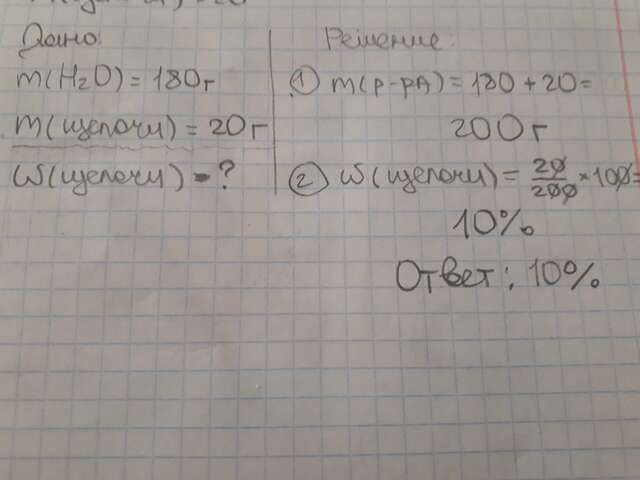 Дано:
m(H₂O) = 180г
m(щелочи) = 20г
ω(щелочи) - ?
Решение:
① m(р-рА) = 180 + 20 =
200г
② ω(щелочи) = 20/200 × 100 =
10%
Ответ: 10%